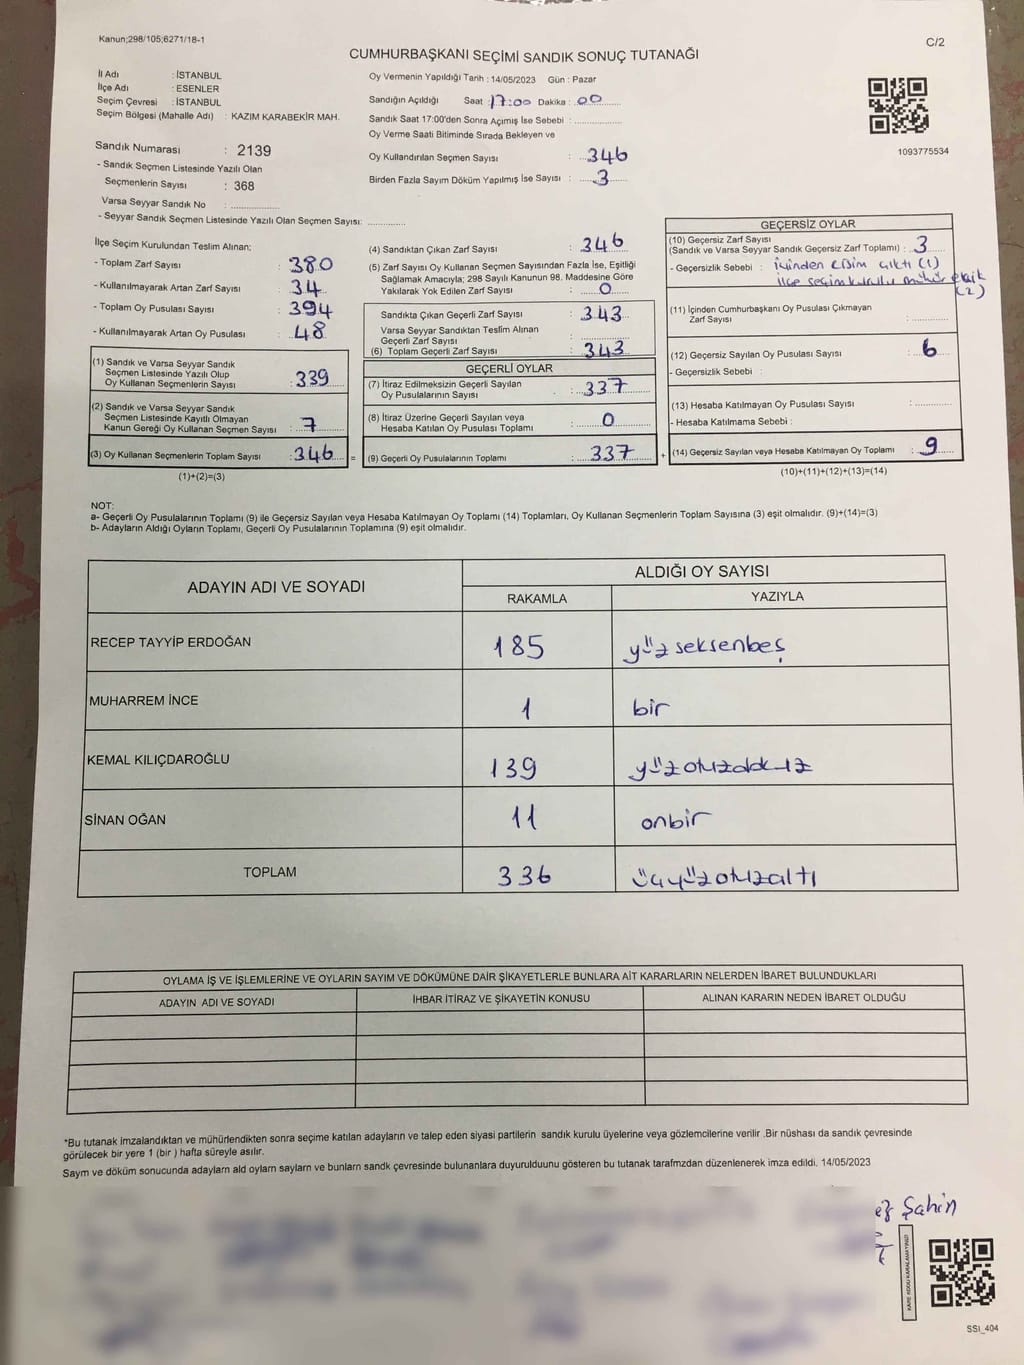 Kanun;298/105;6271/18-1
C/2
CUMHURBAŞKANI SEÇİMİ SANDIK SONUÇ TUTANAĞI
İl Adı : İSTANBUL
İlçe Adı : ESENLER
Seçim Çevresi : İSTANBUL
Seçim Bölgesi (Mahalle Adı) : KAZIM KARABEKİR MAH.
Sandık Numarası : 2139
- Sandık Seçmen Listesinde Yazılı Olan
Seçmenlerin Sayısı : 368
Varsa Seyyar Sandık No : ............
- Seyyar Sandık Seçmen Listesinde Yazılı Olan Seçmen Sayısı: ............
Oy Vermenin Yapıldığı Tarih : 14/05/2023 Gün : Pazar
Sandığın Açıldığı Saat : 17:00 Dakika : 00
Sandık Saat 17:00'den Sonra Açımış İse Sebebi : ............
Oy Verme Saati Bitiminde Sırada Bekleyen ve
Oy Kullandırılan Seçmen Sayısı : 346
Birden Fazla Sayım Döküm Yapılmış İse Sayısı : 3
1093775534
İlçe Seçim Kurulundan Teslim Alınan;
- Toplam Zarf Sayısı : 380
- Kullanılmayarak Artan Zarf Sayısı : 34
- Toplam Oy Pusulası Sayısı : 394
- Kullanılmayarak Artan Oy Pusulası : 48
(1) Sandık ve Varsa Seyyar Sandık
Seçmen Listesinde Yazılı Olup
Oy Kullanan Seçmenlerin Sayısı : 339
(2) Sandık ve Varsa Seyyar Sandık
Seçmen Listesinde Kayıtlı Olmayan
Kanun Gereği Oy Kullanan Seçmen Sayısı : 7
(3) Oy Kullanan Seçmenlerin Toplam Sayısı : 346 =
(1)+(2)=(3)
(4) Sandıktan Çıkan Zarf Sayısı : 346
(5) Zarf Sayısı Oy Kullanan Seçmen Sayısından Fazla İse, Eşitliği
Sağlamak Amacıyla; 298 Sayılı Kanunun 98. Maddesine Göre
Yakılarak Yok Edilen Zarf Sayısı : 0
Sandıkta Çıkan Geçerli Zarf Sayısı : 343
Varsa Seyyar Sandıktan Teslim Alınan
Geçerli Zarf Sayısı : ............
(6) Toplam Geçerli Zarf Sayısı : 343
GEÇERLİ OYLAR
(7) İtiraz Edilmeksizin Geçerli Sayılan
Oy Pusulalarının Sayısı : 337
(8) İtiraz Üzerine Geçerli Sayılan veya
Hesaba Katılan Oy Pusulası Toplamı : 0
(9) Geçerli Oy Pusulalarının Toplamı : 337 +
GEÇERSİZ OYLAR
(10) Geçersiz Zarf Sayısı
(Sandık ve Varsa Seyyar Sandık Geçersiz Zarf Toplamı) : 3
- Geçersizlik Sebebi : içinden cisim çıktı (1)
ilçe seçim kurulu mühür eksik
(2)
(11) İçinden Cumhurbaşkanı Oy Pusulası Çıkmayan
Zarf Sayısı : ............
(12) Geçersiz Sayılan Oy Pusulası Sayısı : 6
- Geçersizlik Sebebi :
(13) Hesaba Katılmayan Oy Pusulası Sayısı : ............
- Hesaba Katılmama Sebebi :
(14) Geçersiz Sayılan veya Hesaba Katılmayan Oy Toplamı : 9
(10)+(11)+(12)+(13)=(14)
NOT:
a- Geçerli Oy Pusulalarının Toplamı (9) ile Geçersiz Sayılan veya Hesaba Katılmayan Oy Toplamı (14) Toplamları, Oy Kullanan Seçmenlerin Toplam Sayısına (3) eşit olmalıdır. (9)+(14)=(3)
b- Adayların Aldığı Oyların Toplamı, Geçerli Oy Pusulalarının Toplamına (9) eşit olmalıdır.
ADAYIN ADI VE SOYADI
ALDIĞI OY SAYISI
RAKAMLA YAZIYLA
RECEP TAYYİP ERDOĞAN 185 yüzseksenbeş
MUHARREM İNCE 1 bir
KEMAL KILIÇDAROĞLU 139 yüzotuzdokuz
SİNAN OĞAN 11 onbir
TOPLAM 336 üçyüzotuzaltı
OYLAMA İŞ VE İŞLEMLERİNE VE OYLARIN SAYIM VE DÖKÜMÜNE DAİR ŞİKAYETLERLE BUNLARA AİT KARARLARIN NELERDEN İBARET BULUNDUKLARI
ADAYIN ADI VE SOYADI İHBAR İTİRAZ VE ŞİKAYETİN KONUSU ALINAN KARARIN NEDEN İBARET OLDUĞU
*Bu tutanak imzalandıktan ve mühürlendikten sonra seçime katılan adayların ve talep eden siyasi partilerin sandık kurulu üyelerine veya gözlemcilerine verilir .Bir nüshası da sandık çevresinde
görülecek bir yere 1 (bir ) hafta süreyle asılır.
Saym ve döküm sonucunda adaylarn ald oylarn saylarn ve bunlarn sandk çevresinde bulunanlara duyurulduunu gösteren bu tutanak tarafmzdan düzenlenerek imza edildi. 14/05/2023
Şahin
KARE KODU KARALAMAYINIZ!
SSI_404